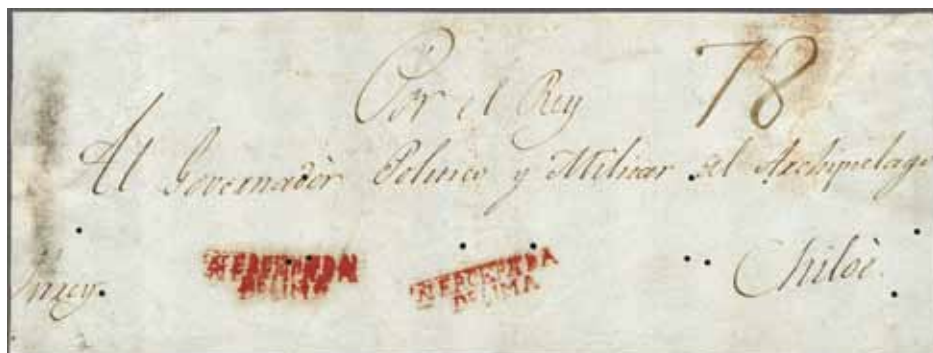 Por el Rey 78
Al Governadòr Politico y Militar del Archipelago
Chiloè.
DE LIMA
DE LIMA